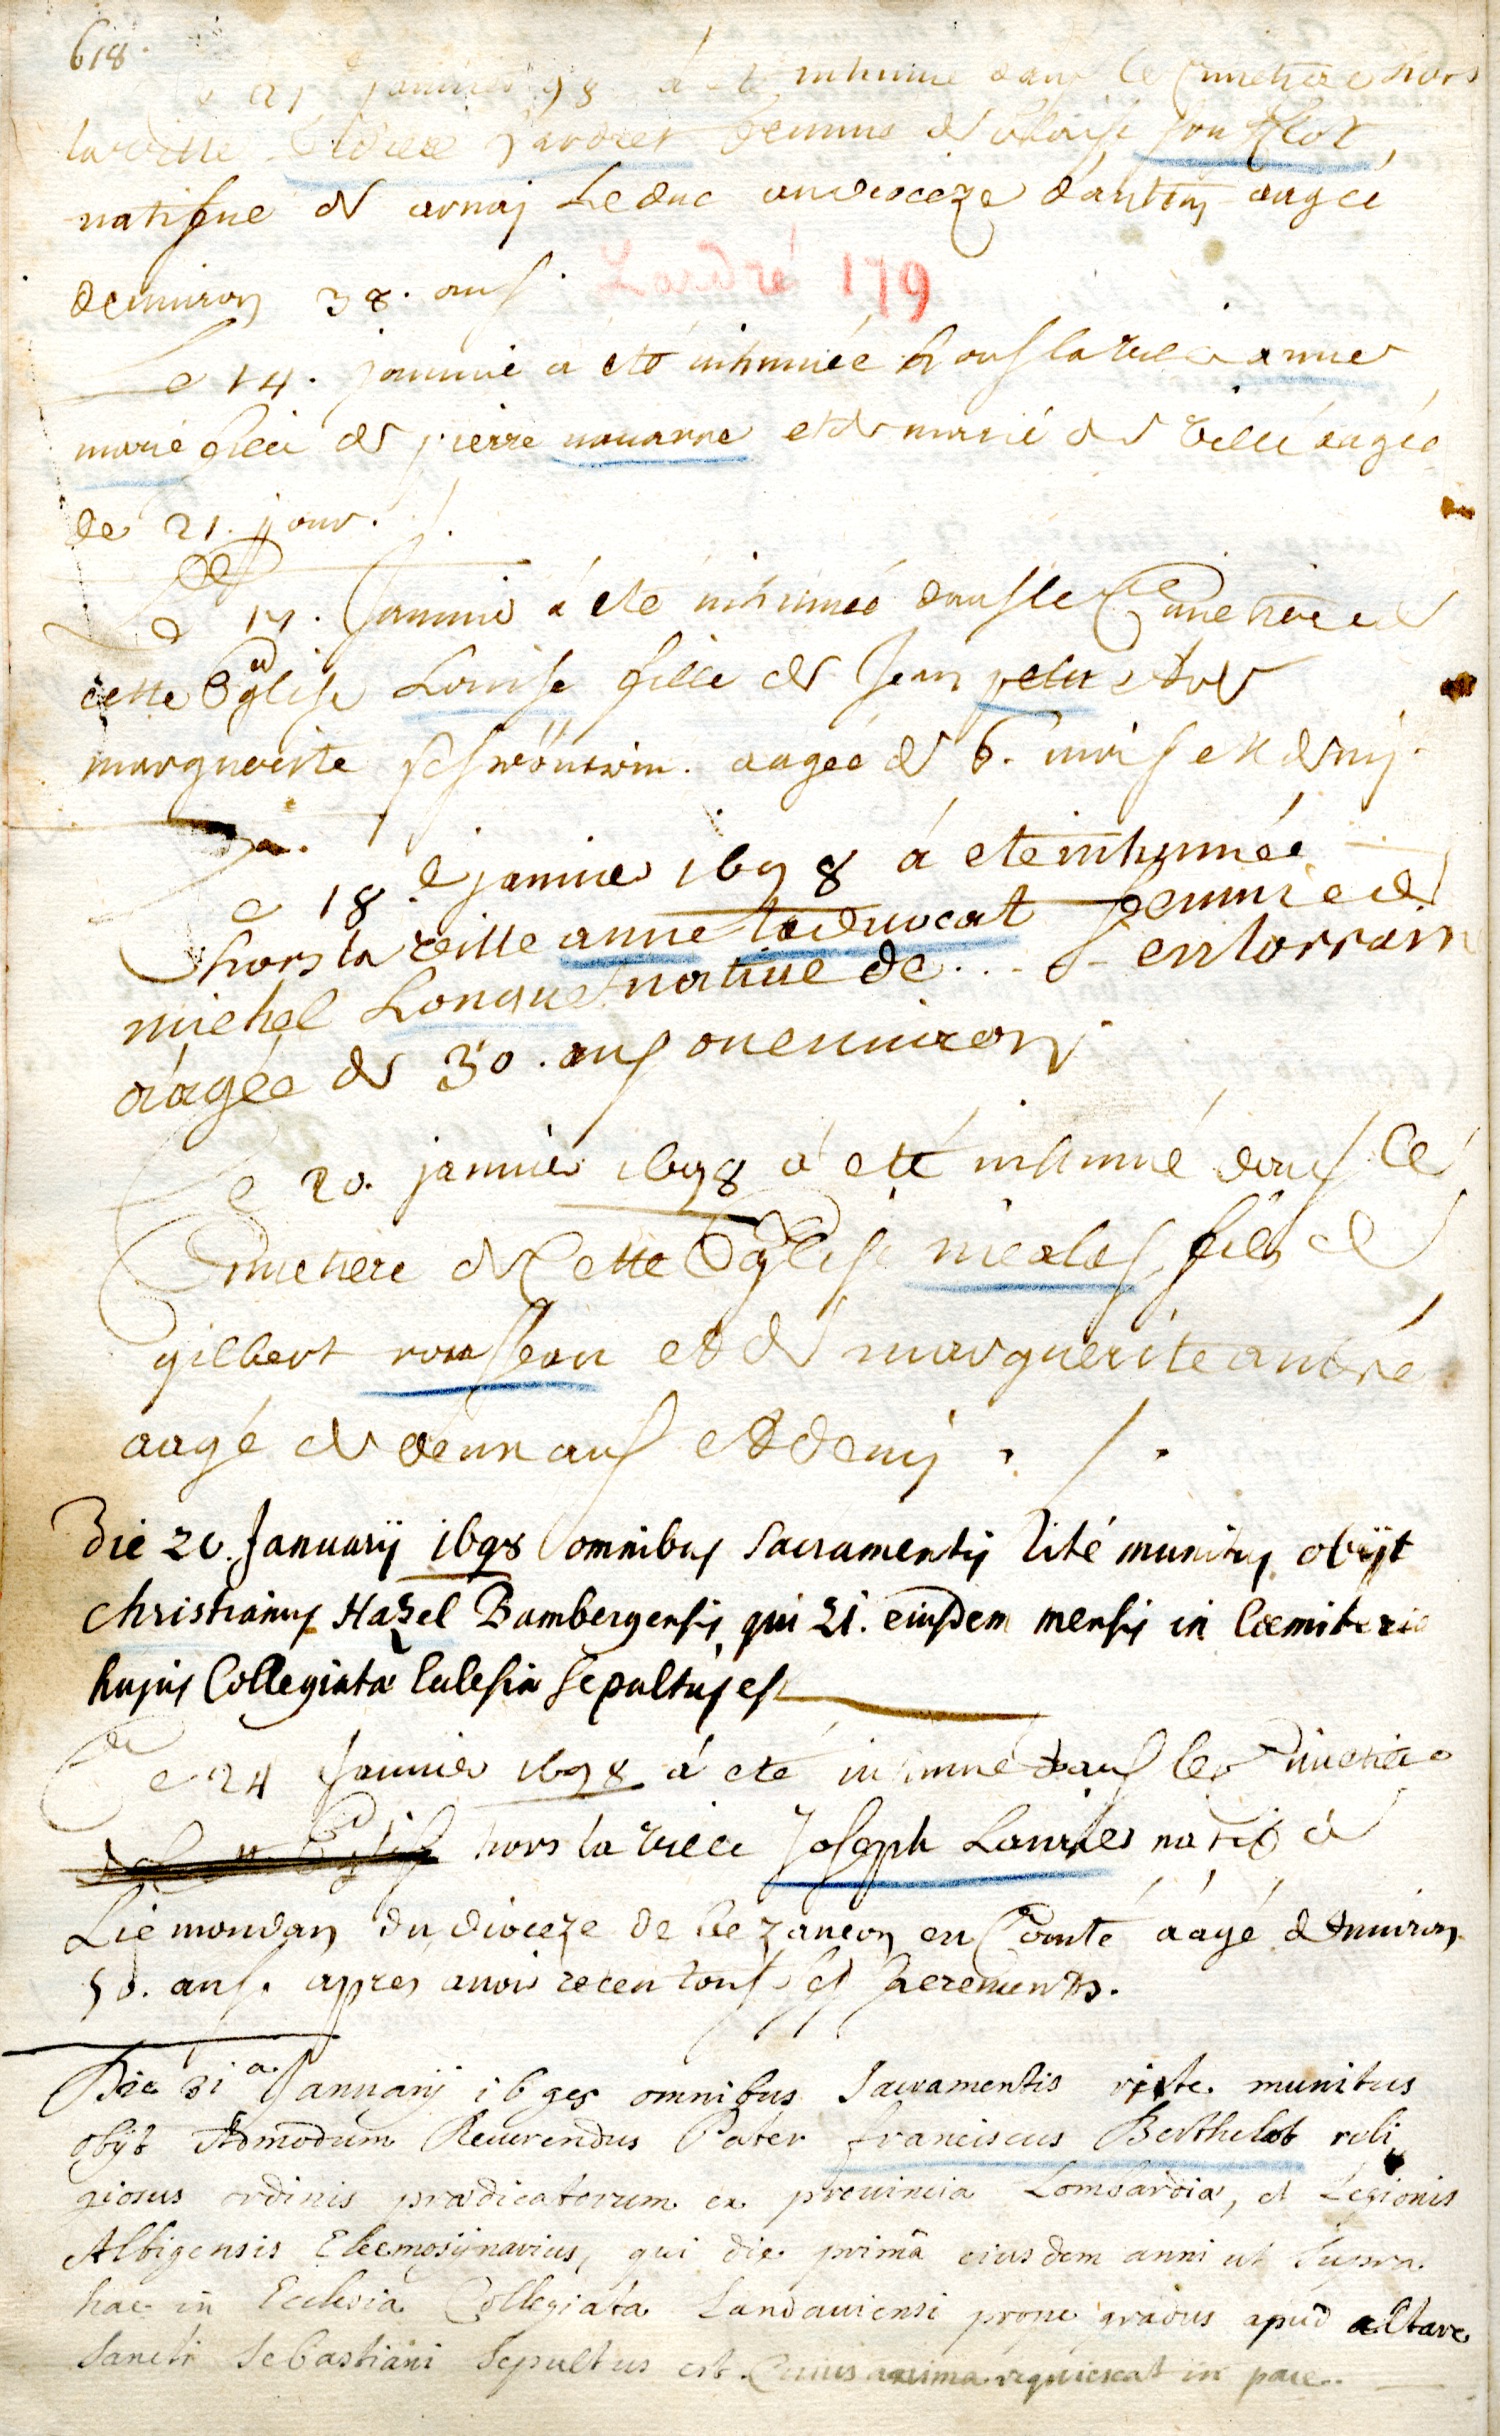 618.
janvier 98 à été inhumé dans le Cimetiere hors
la ville femme de blaise
natifue de arnaj Leduc au dioceze d'autun aagéé
denuiron 38. ans.
Lardré 179
Le 14. januié a été inhumée hors la ville anne
marié fille de pierre nauarre et de marié de Villé aagée
de 21. jour.
Le 17. Januié à été inhumée dans le Cimetiere de
cette Eglise Louise fille de Jean petit et de
marguerite aagéé de 6. mois et demj.
Le 18.e januier 1698 à été inhumée
hors la ville anne laduocat femme de
michel Longuet natiue de... en lorrain
aàgée de 30. ans ou enuiron
Le 20. januier 1698 à été inhumé dans le
Cimetiere de Cette Eglise nicolas fils de
gilbert rousseau et de marguerite andré
aagé de deux ans et demj. /.
Die 20. Januarij 1698 omnibus Sacramentis rité munitus obijt
Christianus Hazel Bambergensis qui 21. eiusdem mensis in Cœmiterio
hujus Collegiatæ Eclesiæ Sepultus est
Le 24 Januier 1698 à été inhumé dans le Cimetiere
de Cette Eglise hors la ville Joseph Lauries natif à
Liemondan du dioceze de bezancon en Comté aàgé denuiron
50. ans. appres auoir receu tous ses sacrements.
Die 31.a Januarij 1698 omnibus Sacramentis riste munitus
obijt Admodum Reuerendus Pater franciscus Berthelot reli
giosus ordinis prædicatorum ex prouincia Lombardiæ, et Legionis
Albigensis Eleemosijnarius, qui die primâ eiusdem anni ut supra
hac in Ecclesia Collegiata Landauiensi prope gradus apud altare
Sancti Sebastiani Sepultus est. Cuius anima requiescat in pace.